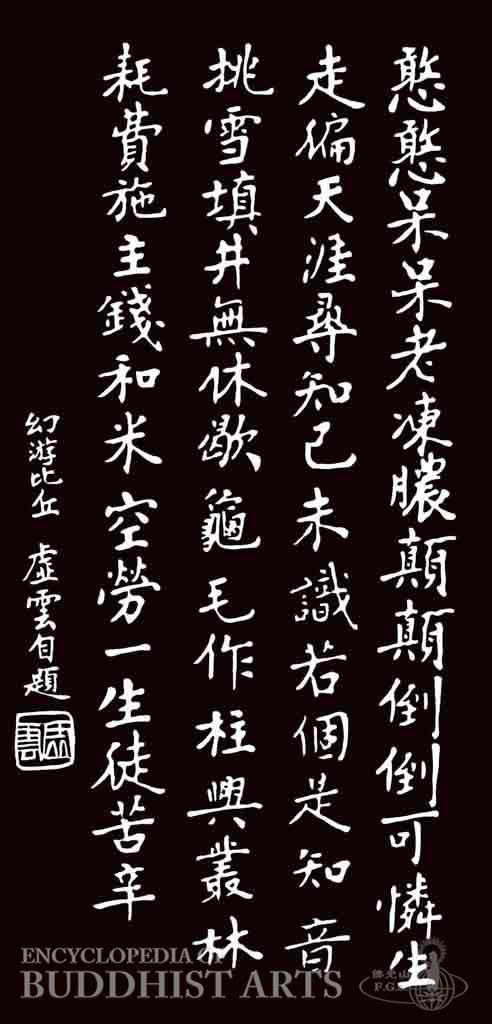 憨憨呆呆老凍膿顛顛倒倒可憐生
走徧天涯尋知己未識若個是知音
挑雪填井無休歇龜毛作柱興叢林
耗費施主錢和米空勞一生徒苦辛
幻游比丘 虛雲自題
虛雲
ENCYCLOPEDIA OF
BUDDHIST ARTS
佛光山
F.G.S